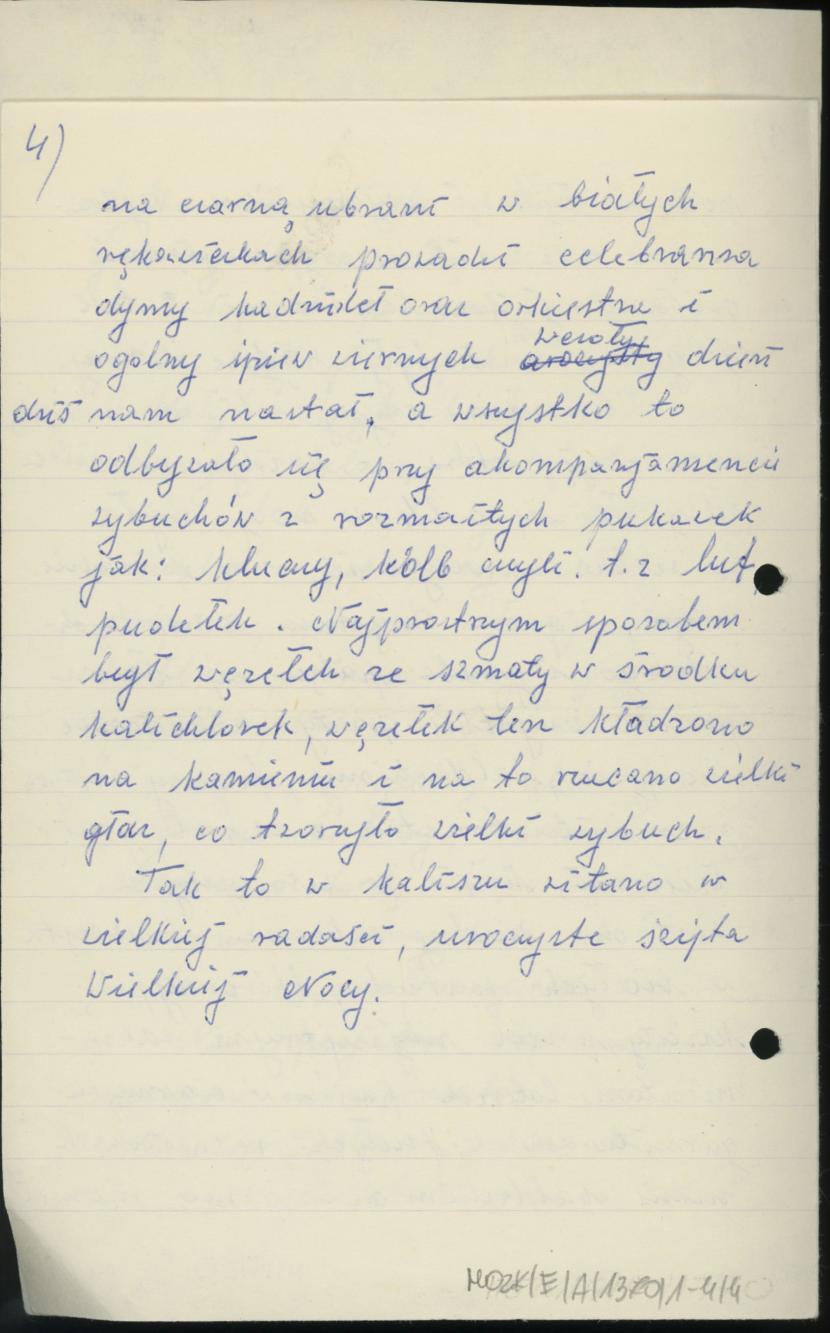 4)
na czarną ubrani w białych
rękawiczkach prowadzi celebransa
dymy kadzideł oraz orkiestra i
ogólny śpiew wiernych wesoły dzień
dziś nam nastał, a wszystko to
odbywało się przy akompanjamencie
wybuchów z rozmaitych pukawek
jak: kluczy, kolb czyli t.z luf,
pudełek. Najprostrzym sposobem
był węzełek ze szmaty w środku
kalichlorek, węzełek ten kładzono
na kamieniu i na to rzucano wielki
głaz, co tworzyło wielki wybuch.
Tak to w Kaliszu witano w
wielkiej radości, uroczyste święta
Wielkiej Nocy.
MOZK/E/A/1370/1-4/4